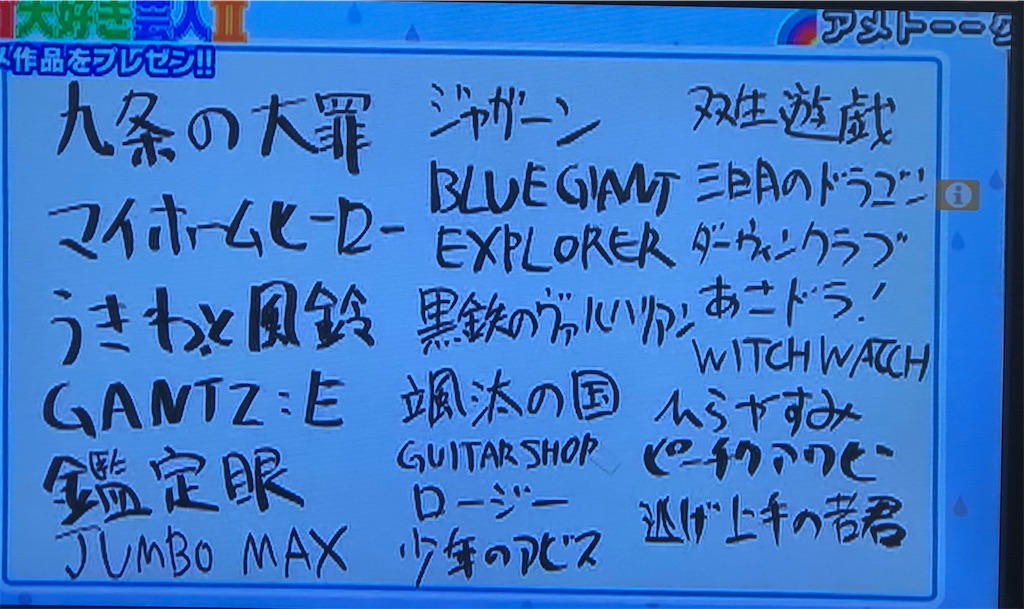 大好き芸人II
アメトーーク
メ作品をプレゼン!!
九条の大罪
マイホームヒーロー
うきわと風鈴
GANTZ:E
鑑定眼
JUMBO MAX
ジャガーン
BLUE GIANT
EXPLORER
黒鉄のヴァルハリアン
颯汰の国
GUITAR SHOP
ロージー
少年のアビス
双生遊戯
三日月のドラゴン
ダーウィンクラブ
あさドラ!
WITCH WATCH
ひらやすみ
ピーチクアワビー
逃げ上手の若君